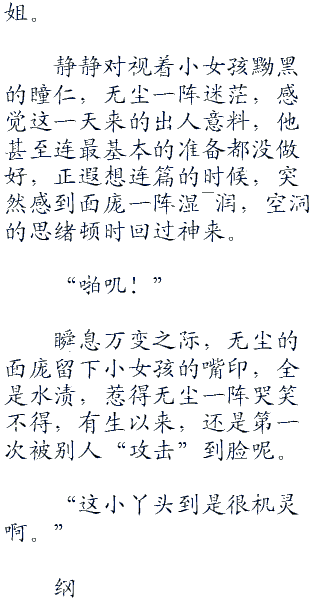 姐。
静静对视着小女孩黝黑
的瞳仁，无尘一阵迷茫，感
觉这一天来的出人意料，他
甚至连最基本的准备都没做
好，正遐想连篇的时候，突
然感到面庞一阵湿¯润，空洞
的思绪顿时回过神来。
“啪叽！”
瞬息万变之际，无尘的
面庞留下小女孩的嘴印，全
是水渍，惹得无尘一阵哭笑
不得，有生以来，还是第一
次被别人“攻击”到脸呢。
“这小丫头到是很机灵
啊。”
纲